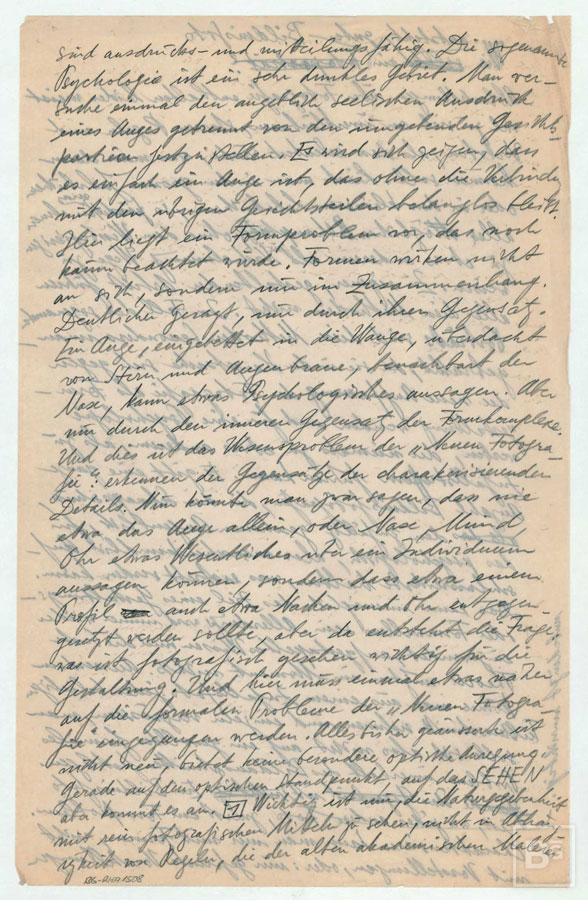 sind ausdrucks- und mitteilungsfähig. Die sogenannte
Psychologie ist ein sehr dunkles Gebiet. Man ver-
suche einmal den angeblich seelischen Ausdruck
eines Auges getrennt von den umgebenden Gesichts-
partien festzustellen. Es wird sich zeigen, dass
es einfach ein Auge ist, das ohne die Verbindung
mit den übrigen Gesichtsteilen belanglos bleibt.
Hier liegt ein Formproblem vor, das noch
kaum beachtet wurde. Formen wirken nicht
an sich, sondern nur im Zusammenhang.
Deutlicher gesagt, nur durch ihren Gegensatz.
Ein Auge, eingebettet in die Wange, überdacht
von Stirn und Augenbraue, benachbart der
Nase, kann etwas Psychologisches aussagen. Aber
nur durch den inneren Gegensatz der Formkomplexe.
Und dies ist das Wesensproblem der „Neuen Fotogra-
fie": erkennen der Gegensätze der charakterisierenden
Details. Nun könnte man zwar sagen, dass nie
etwa das Auge allein, oder Nase, Mund
Ohr etwas Wesentliches über ein Individuum
aussagen können, sondern dass etwa einem
Profil auch etwa Nacken und Ohr entgegen-
gesetzt werden sollte, aber da entsteht die Frage:
was ist fotografisch gesehen wichtig für die
Gestaltung? Und hier muss einmal etwas näher
auf die formalen Probleme der „Neuen Fotogra-
fie" eingegangen werden. Alles bisher geäusserte ist
nicht neu, bietet keine besondere optische Anregung.
Gerade auf den optischen Standpunkt, auf das SEHEN
aber kommt es an. Wichtig ist nur, die Naturgegebenheit
mit rein fotografischen Mitteln zu sehen, nicht in Abhän-
gigkeit von Regeln, die der alten akademischen Malerei
BG-RHA 1508
BG